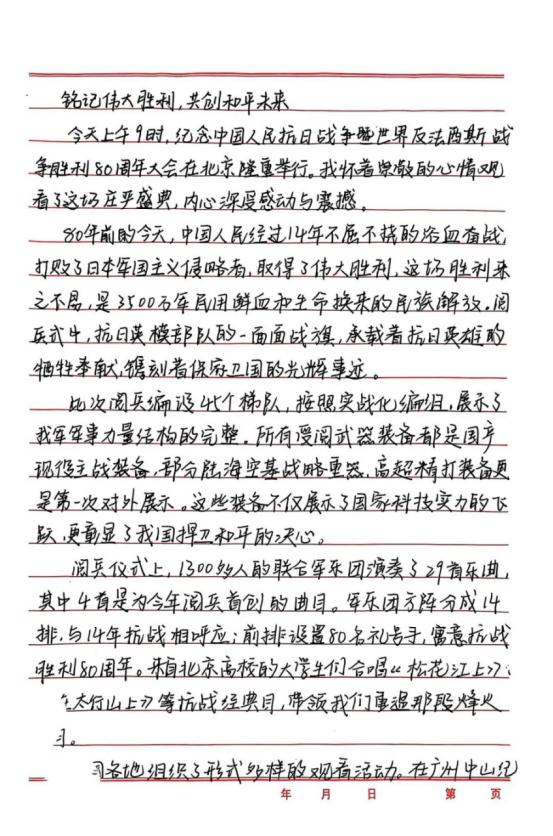 铭记伟大胜利,共创和平未来
今天上午9时,纪念中国人民抗日战争暨世界反法西斯战
争胜利80周年大会在北京隆重举行。我怀着崇敬的心情观
看了这场庄严盛典,内心深受感动与震撼。
80年前的今天,中国人民经过14年不屈不挠的浴血奋战,
打败了日本军国主义侵略者,取得了伟大胜利,这场胜利来
之不易,是3500万军民用鲜血和生命换来的民族解放。阅
兵式中,抗日英模部队的一面面战旗,承载着抗日英雄的
牺牲奉献,镌刻着保家卫国的光辉事迹。
此次阅兵编设45个梯队,按照实战化编组,展示了
我军军事力量结构的完整。所有受阅武器装备都是国产
现役主战装备,部分陆海空基战略重器、高超精打装备更
是第一次对外展示。这些装备不仅展示了国家科技实力的飞
跃,更彰显了我国捍卫和平的决心。
阅兵仪式上,1300多人的联合军乐团演奏了29首乐曲,
其中4首是为今年阅兵首创的曲目。军乐团方阵分成14
排,与14年抗战相呼应;前排设置80名礼号手,寓意抗战
胜利80周年。来自北京高校的大学生们合唱《松花江上》
太行山上》等抗战经典目,带领我们重温那段烽火

各地组织了形式多样的观看活动。在广州中山纪
年 月 日 第 页